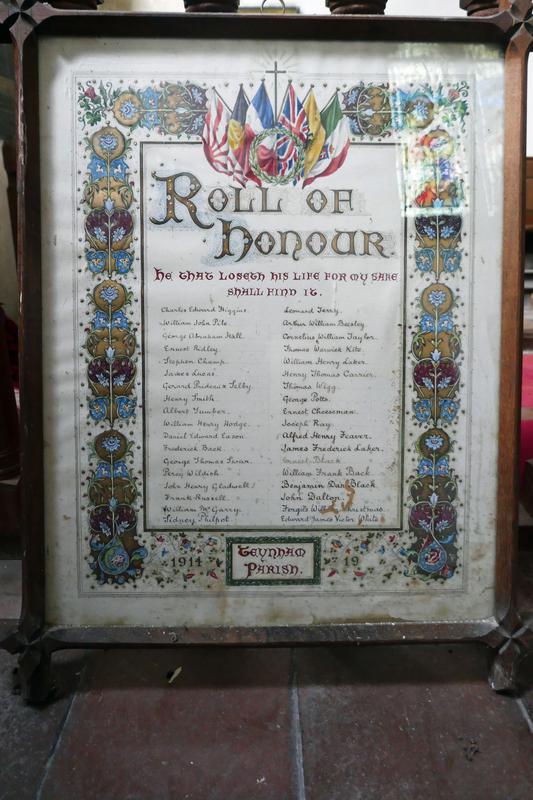 Roll of
Honour
He that loseth his life for my sake
shall find it.
Charles Edward Higgins.
William John Pile.
George Abraham Hall.
Ernest Ridley.
Stephen Champ.
James Lucas.
Gerard Prideaux Selby.
Henry Smith.
Albert
William Henry Hodge.
Daniel Edward Eason
Frederick Back.
George Thomas Swan.
Percy Wildish.
John Henry Gladwell
Frank Russell.
William McGarry.
Sidney Philpot.
Leonard Terry.
Arthur William Beesley.
Cornelius William Taylor.
Thomas Warwick Kite.
William Henry Laker.
Henry Thomas Carrier.
Thomas Wigg.
George Potts.
Ernest Cheeseman.
Joseph Ray.
Alfred Henry Feaver.
James Frederick Laker.
Ernest Black
William Frank Back
Benjamin Dan Black
John Dalton.
Christmas.
Edward James Victor White
1914
Teynham
Parish.
19